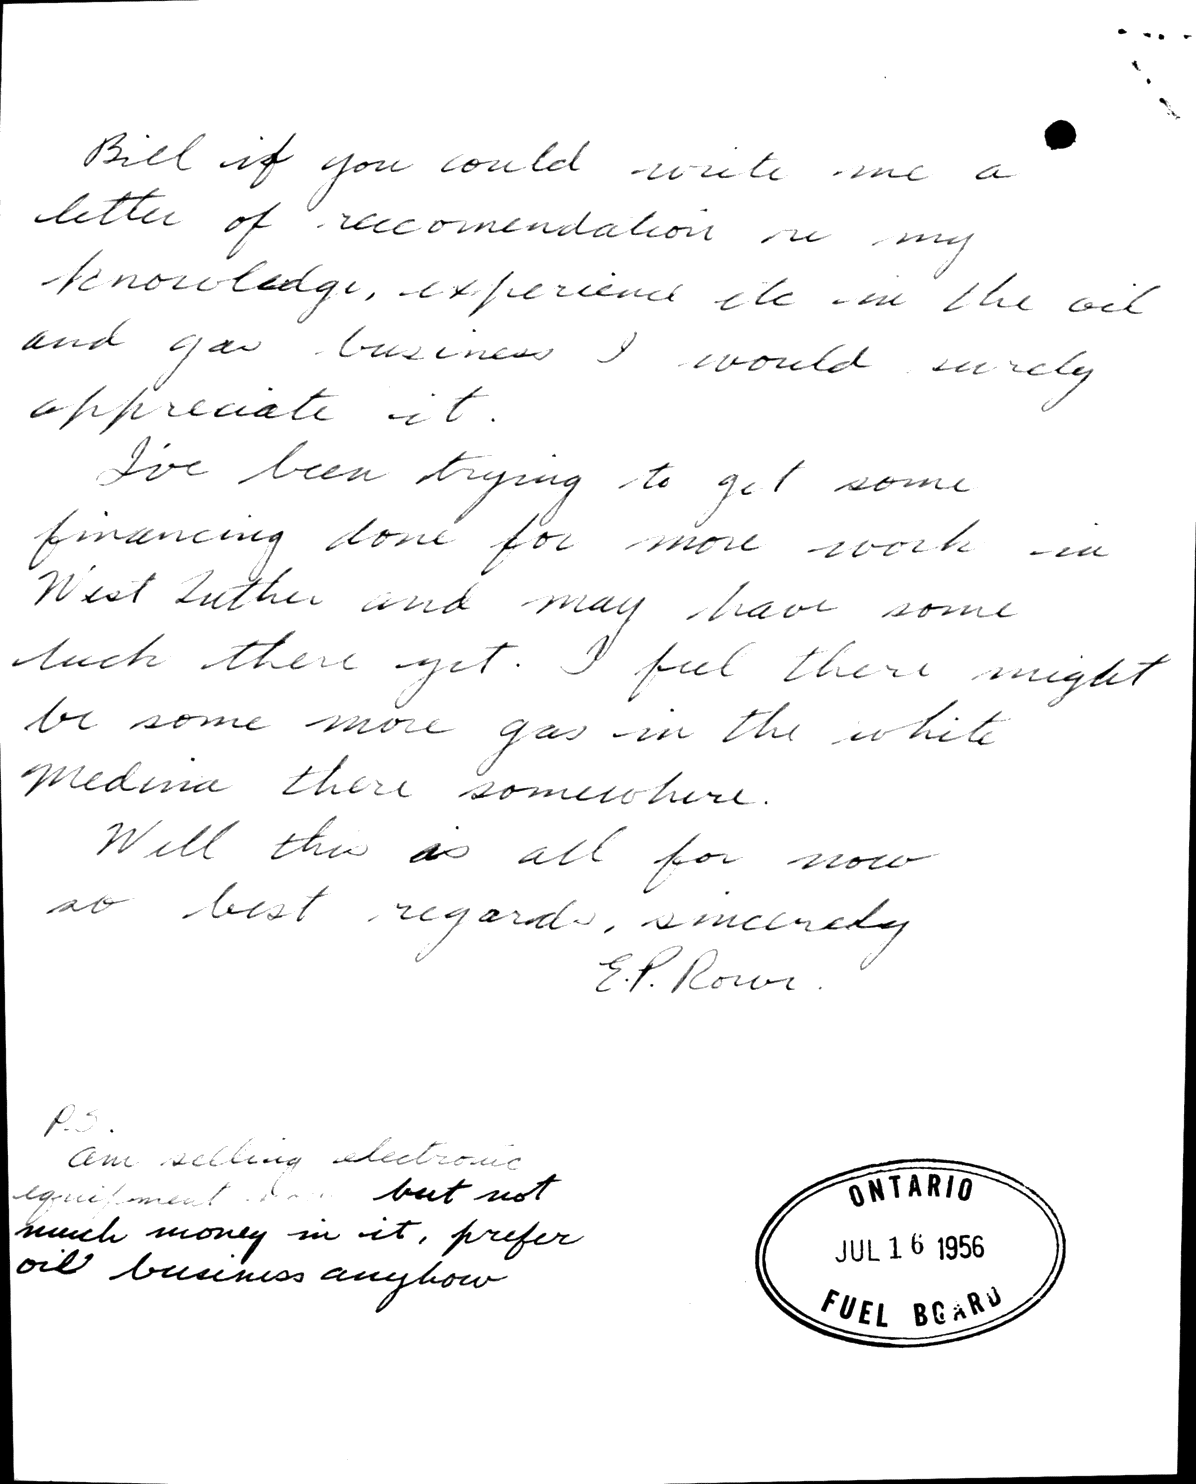 Bill if you could write me a
letter of reccomendation re my
knowledge, experience etc in the oil
and gas business I would surely
appreciate it.
I've been trying to get some
financing done for more work in
West Luther and may have some
luck there yet. I feel there might
be some more gas in the white
Medina there somewhere.
Well this is all for now
so best regards, sincerely
E.P. Rowe.
P.S.
am selling electronic
equipment but not
much money in it, prefer
oil business anyhow
ONTARIO
JUL 16 1956
FUEL BOARD